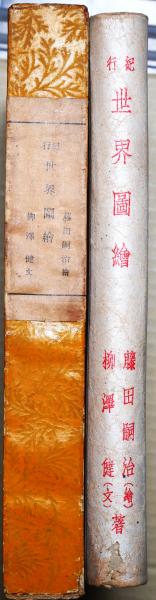 紀行
世界圖繪
藤田嗣治繪
柳澤健文
紀行
世界圖繪
藤田嗣治(繪)
柳澤健(文)
著